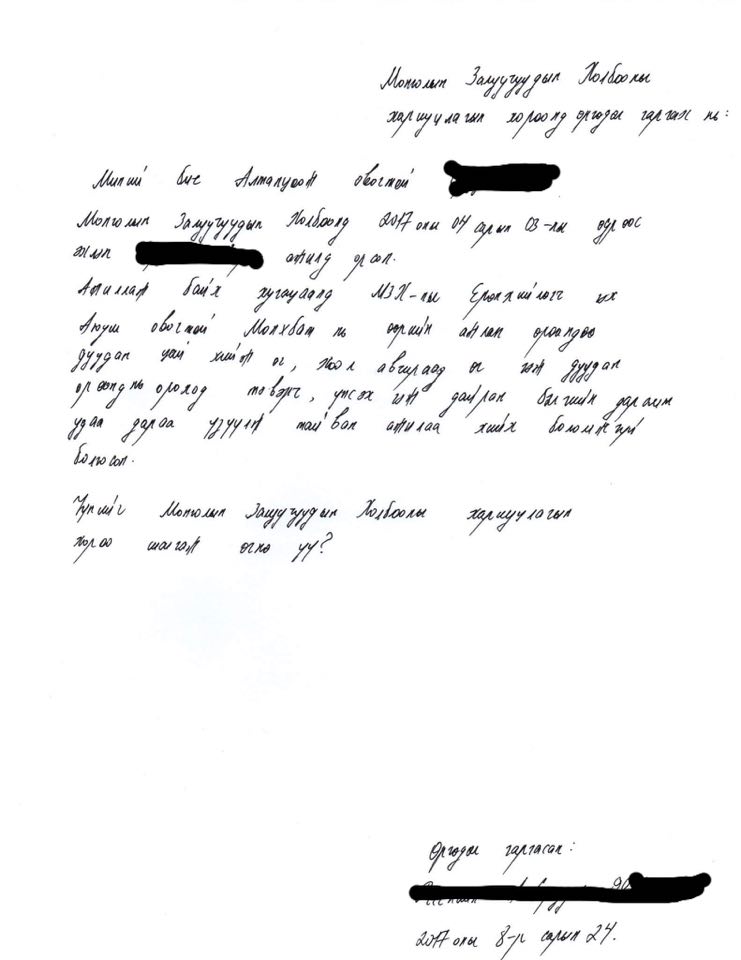 Монголын Залуучуудын Холбооны
хариуцлагын хороонд өргөдөл гаргах нь:
Миний бие Алтанцоож овогтой
Монголын Залуучуудын Холбоонд 2017 оны 04 сарын 03-ны өдрөөс
ажилд орсон.
Ажиллаж байх хугацаанд МЗХ-ны Ерөнхийлөгч их
Аюуш овогтой Мөнхбат нь өөрийн ажлын өрөөндөө
дуудан цай хийж өг, хоол авчираад өг гэж дуудан
өрөөнд нь ороход тэвэрч, үнсэх гэж дайран бэлгийн дарамт
удаа дараа үзүүлж тайван ажлаа хийх боломжгүй
болгосон.
Үүнийг Монголын Залуучуудын Холбооны хариуцлагын
хороо шалгаж өгнө үү?
Өргөдөл гаргасан:
2017 оны 8-р сарын 24.